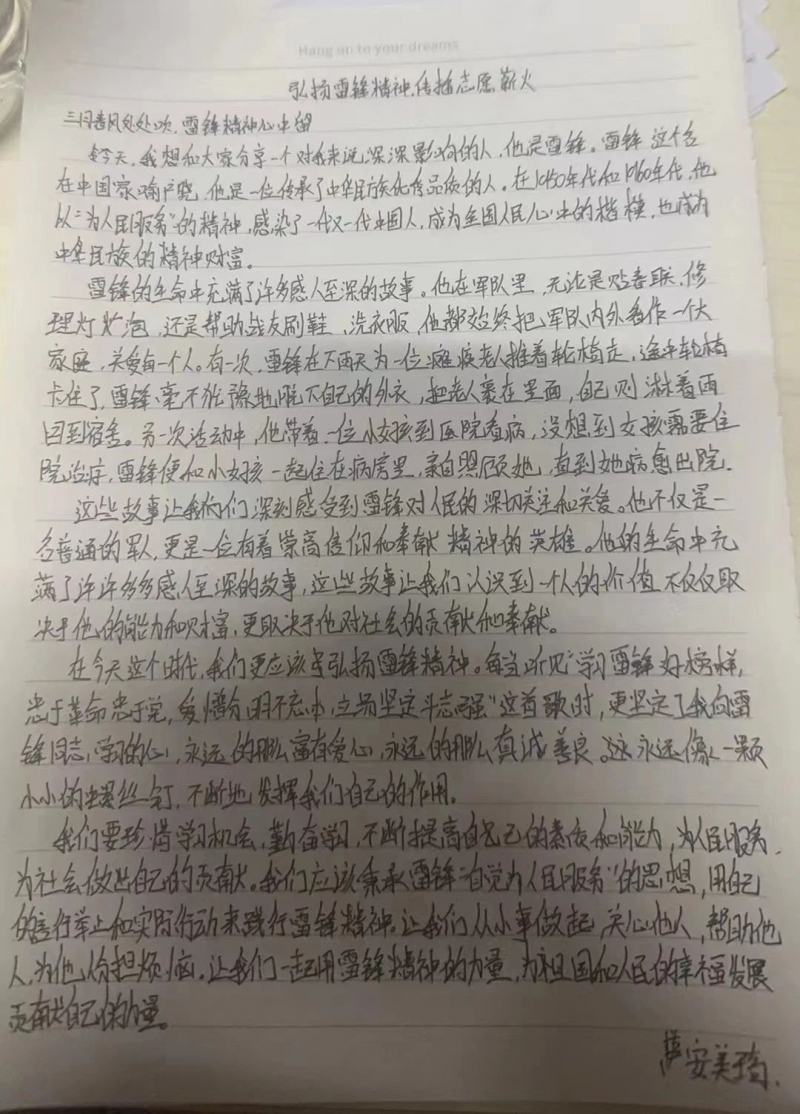 Hang on to your dreams
弘扬雷锋精神,传播志愿薪火
三月春风处处吹,雷锋精神心中留
今天,我想和大家分享一个对我来说深深影响的人,他是雷锋。雷锋这个名
在中国家喻户晓,他是一位传承了中华民族优秀品质的人。在1950年代和1960年代,他
以“为人民服务”的精神,感染了一代又一代中国人,成为全国人民心中的楷模,也成为
中华民族的精神财富。
雷锋的生命中充满了许多感人至深的故事。他在军队里,无论是贴春联、修
理灯泡,还是帮助战友刷鞋,洗衣服,他都始终把军队内外看作一个大
家庭,关爱每一个人。有一次,雷锋在下雨天为一位瘫痪老人推着轮椅走,途中轮椅
卡住了,雷锋毫不犹豫地脱下自己的外衣,把老人裹在里面,自己则淋着雨
回到宿舍。另一次活动中,他带着一位小女孩到医院看病,没想到女孩需要住
院治疗,雷锋便和小女孩一起住在病房里,亲自照顾她,直到她病愈出院.
这些故事让我们深刻感受到雷锋对人民的深切关注和关爱。他不仅是一
名普通的军人,更是一位有着崇高信仰和奉献精神的英雄。他的生命中充
满了许许多多感人至深的故事,这些故事让我们认识到一个人的价值不仅仅取
决于他的能力和财富,更取决于他对社会的贡献和奉献。
在今天这个时代,我们更应该弘扬雷锋精神。每当听见“学习雷锋好榜样,
忠于革命忠于党,爱憎分明不忘本,立场坚定斗志强”这首歌时,更坚定了我向雷
锋同志学习的心,永远的那么富有爱心,永远的那么真诚善良。永远像一颗
小小的螺丝钉,不断地发挥我们自己的作用。
我们要珍惜学习机会,勤奋学习,不断提高自己的素质和能力,为人民服务,
为社会做出自己的贡献。我们应该秉承雷锋“自觉为人民服务”的思想,用自己
的言行举止和实际行动来践行雷锋精神.让我们从小事做起,关心他人,帮助他
人,为他人分担烦恼.让我们一起用雷锋精神的力量,为祖国和人民的幸福发展
贡献自己的力量。
安美